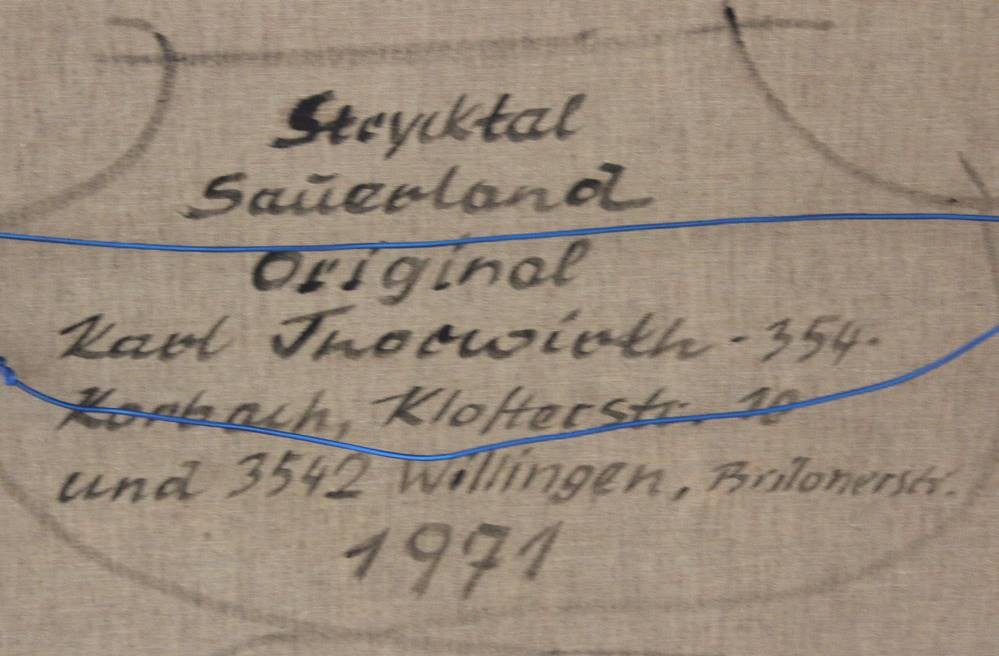 Strycktal
Sauerland
Original
Karl Jnorwirth - 354 -
Korbach, Klosterstr. 10
und 3542 Willingen, Brilonerstr.
1971